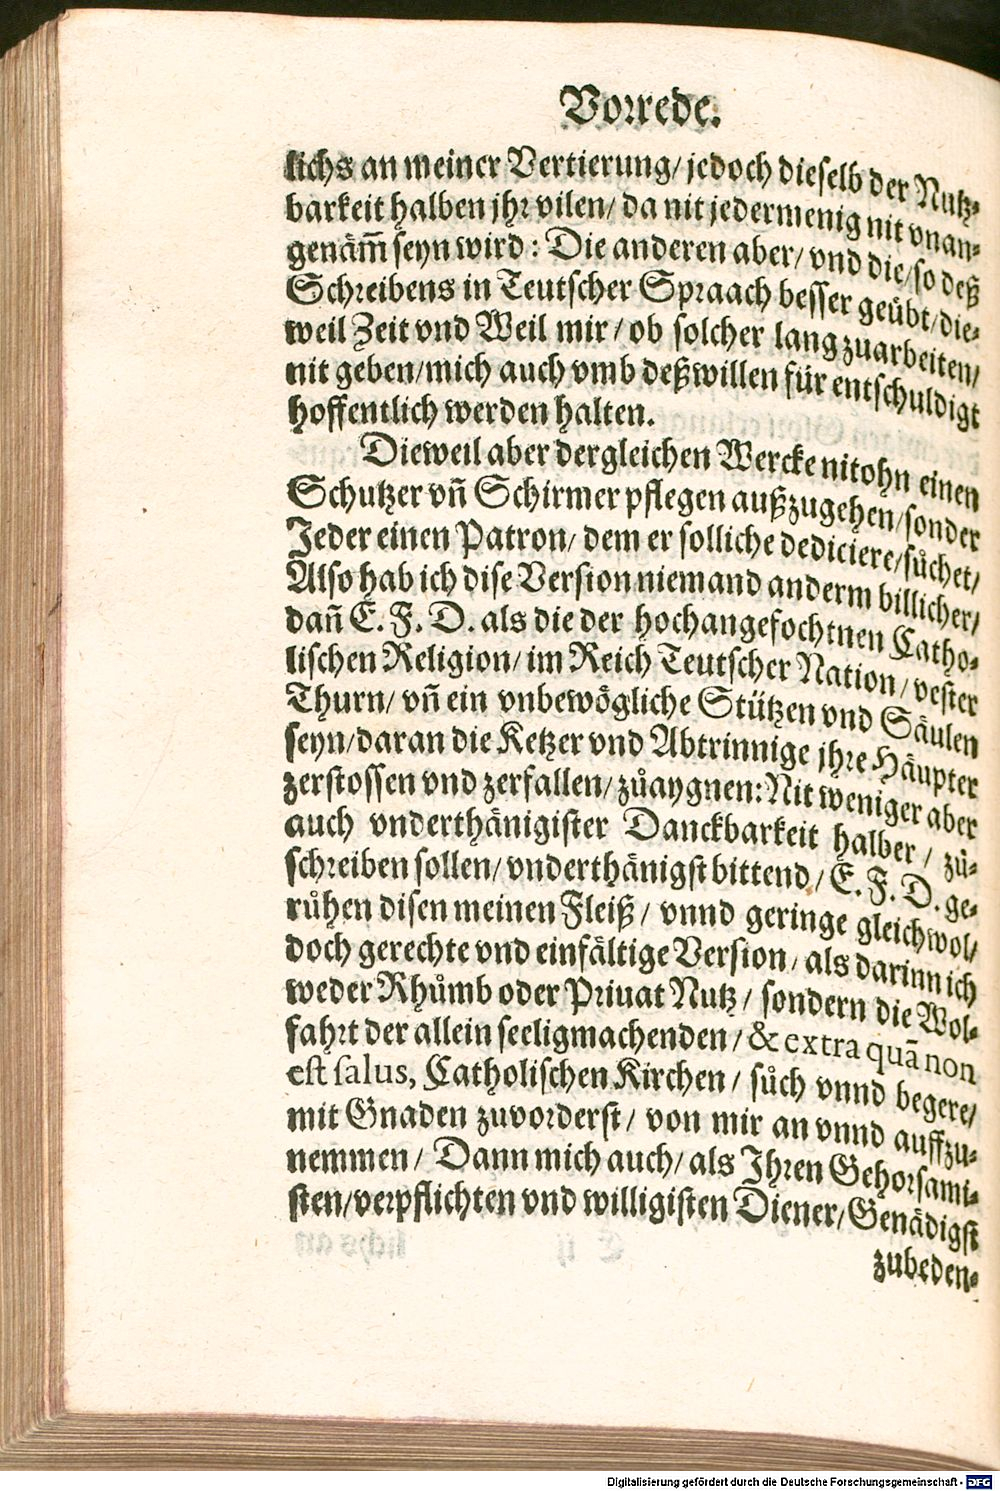 Vorrede.
lichs an meiner Vertierung/ jedoch dieselb der Nutz-
barkeit halben jhr vilen/ da nit jedermenig nit vnan-
genäm̄ seyn wird: Die anderen aber/ vnd die/ so deß
Schreibens in Teutscher Spraach besser geübt/ die-
weil Zeit vnd Weil mir/ ob solcher lang zuarbeiten/
nit geben/ mich auch vmb deßwillen für entschuldigt
hoffentlich werden halten.
Dieweil aber dergleichen Wercke nit ohn einen
Schutzer vñ Schirmer pflegen außzugehen/ sonder
Jeder einen Patron/ dem er solliche dediciere/ sůchet/
Also hab ich dise Version niemand anderm billicher/
dañ E. F. D. als die der hochangefochtnen Catho-
lischen Religion/ im Reich Teutscher Nation/ vester
Thurn/ vñ ein vnbewögliche Stützen vnd Säulen
seyn/ daran die Ketzer vnd Abtrinnige jhre Häupter
zerstossen vnd zerfallen/ zůaygnen: Nit weniger aber
auch vnderthänigister Danckbarkeit halber/ zů-
schreiben sollen/ vnderthänigst bittend/ E. F. D. ge-
růhen disen meinen Fleiß/ vnnd geringe gleichwol/
doch gerechte vnd einfältige Version/ als darinn ich
weder Rhůmb oder Priuat Nutz/ sondern die Wol-
fahrt der allein seeligmachenden/ & extra quā non
est salus, Catholischen Kirchen/ sůch vnnd begere/
mit Gnaden zuvorderst/ von mir an vnnd auffzu-
nemmen/ Dann mich auch/ als Ihren Gehorsami-
sten/ verpflichten vnd willigisten Diener/ Genädigst
zubeden-
Digitalisierung gefördert durch die Deutsche Forschungsgemeinschaft - DFG